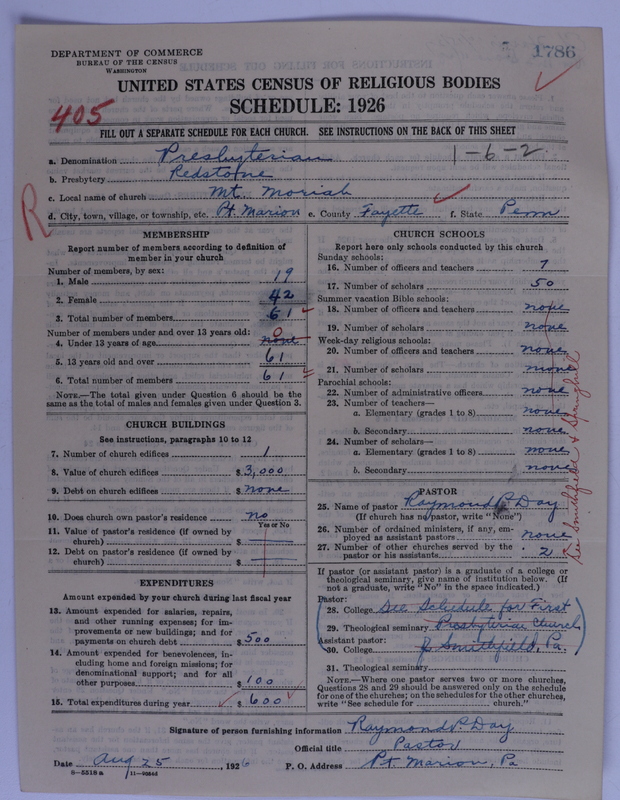 1786
DEPARTMENT OF COMMERCE
BUREAU OF THE CENSUS
WASHINGTON
UNITED STATES CENSUS OF RELIGIOUS BODIES
SCHEDULE: 1926
405
FILL OUT A SEPARATE SCHEDULE FOR EACH CHURCH. SEE INSTRUCTIONS ON THE BACK OF THIS SHEET
1-6-2
a. Denomination Presbyterian
b. Presbytery Redstone
c. Local name of church Mt. Moriah
R
d. City, town, village, or township, etc. Pt. Marion e. County Fayette f. State Penn
MEMBERSHIP
Report number of members according to definition of
member in your church
Number of members, by sex:
1. Male 19
2. Female 42
3. Total number of members 61
Number of members under and over 13 years old:
0
4. Under 13 years of age none
5. 13 years old and over 61
6. Total number of members 61
NOTE.—The total given under Question 6 should be
the same as the total of males and females given under Question 3.
CHURCH BUILDINGS
See instructions, paragraphs 10 to 12
7. Number of church edifices 1
8. Value of church edifices $3,000
9. Debt on church edifices $ none
10. Does church own pastor's residence no
Yes or No
11. Value of pastor's residence (if owned by
church) $
12. Debt on pastor's residence (if owned by
church) $
EXPENDITURES
Amount expended by your church during last fiscal year
13. Amount expended for salaries, repairs,
and other running expenses; for im-
provements or new buildings; and for
payments on church debt $500
14. Amount expended for benevolences, in-
cluding home and foreign missions; for
denominational support; and for all
other purposes $100
15. Total expenditures during year $600
CHURCH SCHOOLS
Report here only schools conducted by this church
Sunday schools:
16. Number of officers and teachers 7
17. Number of scholars 50
Summer vacation Bible schools:
18. Number of officers and teachers none
19. Number of scholars none
Week-day religious schools:
20. Number of officers and teachers none
21. Number of scholars none
Parochial schools:
22. Number of administrative officers none
23. Number of teachers—
a. Elementary (grades 1 to 8) none
b. Secondary none
24. Number of scholars—
a. Elementary (grades 1 to 8) none
b. Secondary none
See Smithfield & Springhill
PASTOR
25. Name of pastor Raymond P. Day
(If church has no pastor, write "None")
26. Number of ordained ministers, if any, em-
ployed as assistant pastors none
27. Number of other churches served by the
pastor or his assistants 2
If pastor (or assistant pastor) is a graduate of a college or
theological seminary, give name of institution below. (If
not a graduate, write "No" in the space indicated.)
Pastor:
28. College See Schedule for First
29. Theological seminary Presbyterian Church
Assistant pastor:
30. College of Smithfield, Pa.
31. Theological seminary
NOTE.—Where one pastor serves two or more churches,
Questions 28 and 29 should be answered only on the schedule
for one of the churches; on the schedules for the other churches,
write "See schedule for church."
Signature of person furnishing information Raymond P. Day
Official title Pastor
Date Aug 25, 1926 P. O. Address Pt. Marion, Pa
8-5518a 11-9034d